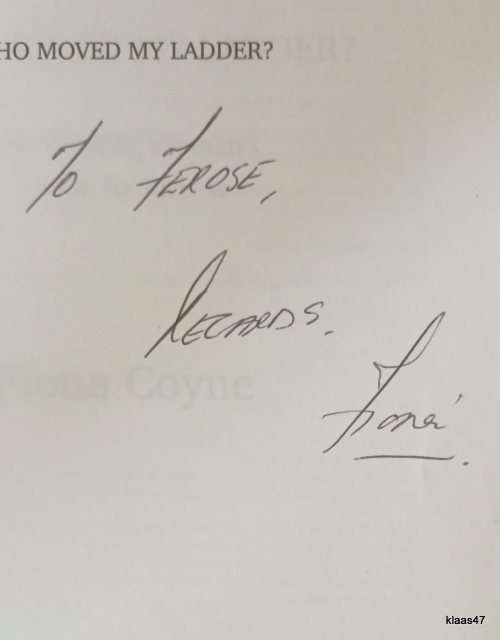 HO MOVED MY LADDER?
To FEROSE,
REGARDS.
Fiona
Fiona Coyne
klaas47